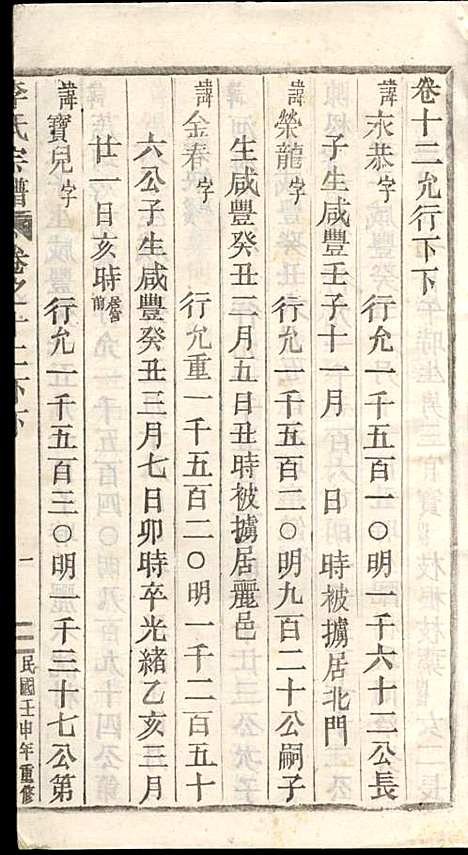 卷十二允行下下
諱永恭字 行允一千五百一○明一千六十二公長
子生咸豐壬子十一月 日 時被擄居北門
諱榮龍字 行允一千五百二○明九百二十公嗣子
生咸豐癸丑二月五日丑時被擄居麗邑
諱金春字 行允重一千五百二○明一千二百五十
六公子生咸豐癸丑三月七日卯時卒光緒乙亥三月
廿一日亥時
諱寶兒字 行允一千五百三○明一千三十七公第
李氏宗譜 卷之十二下下 一 民國壬申年重修